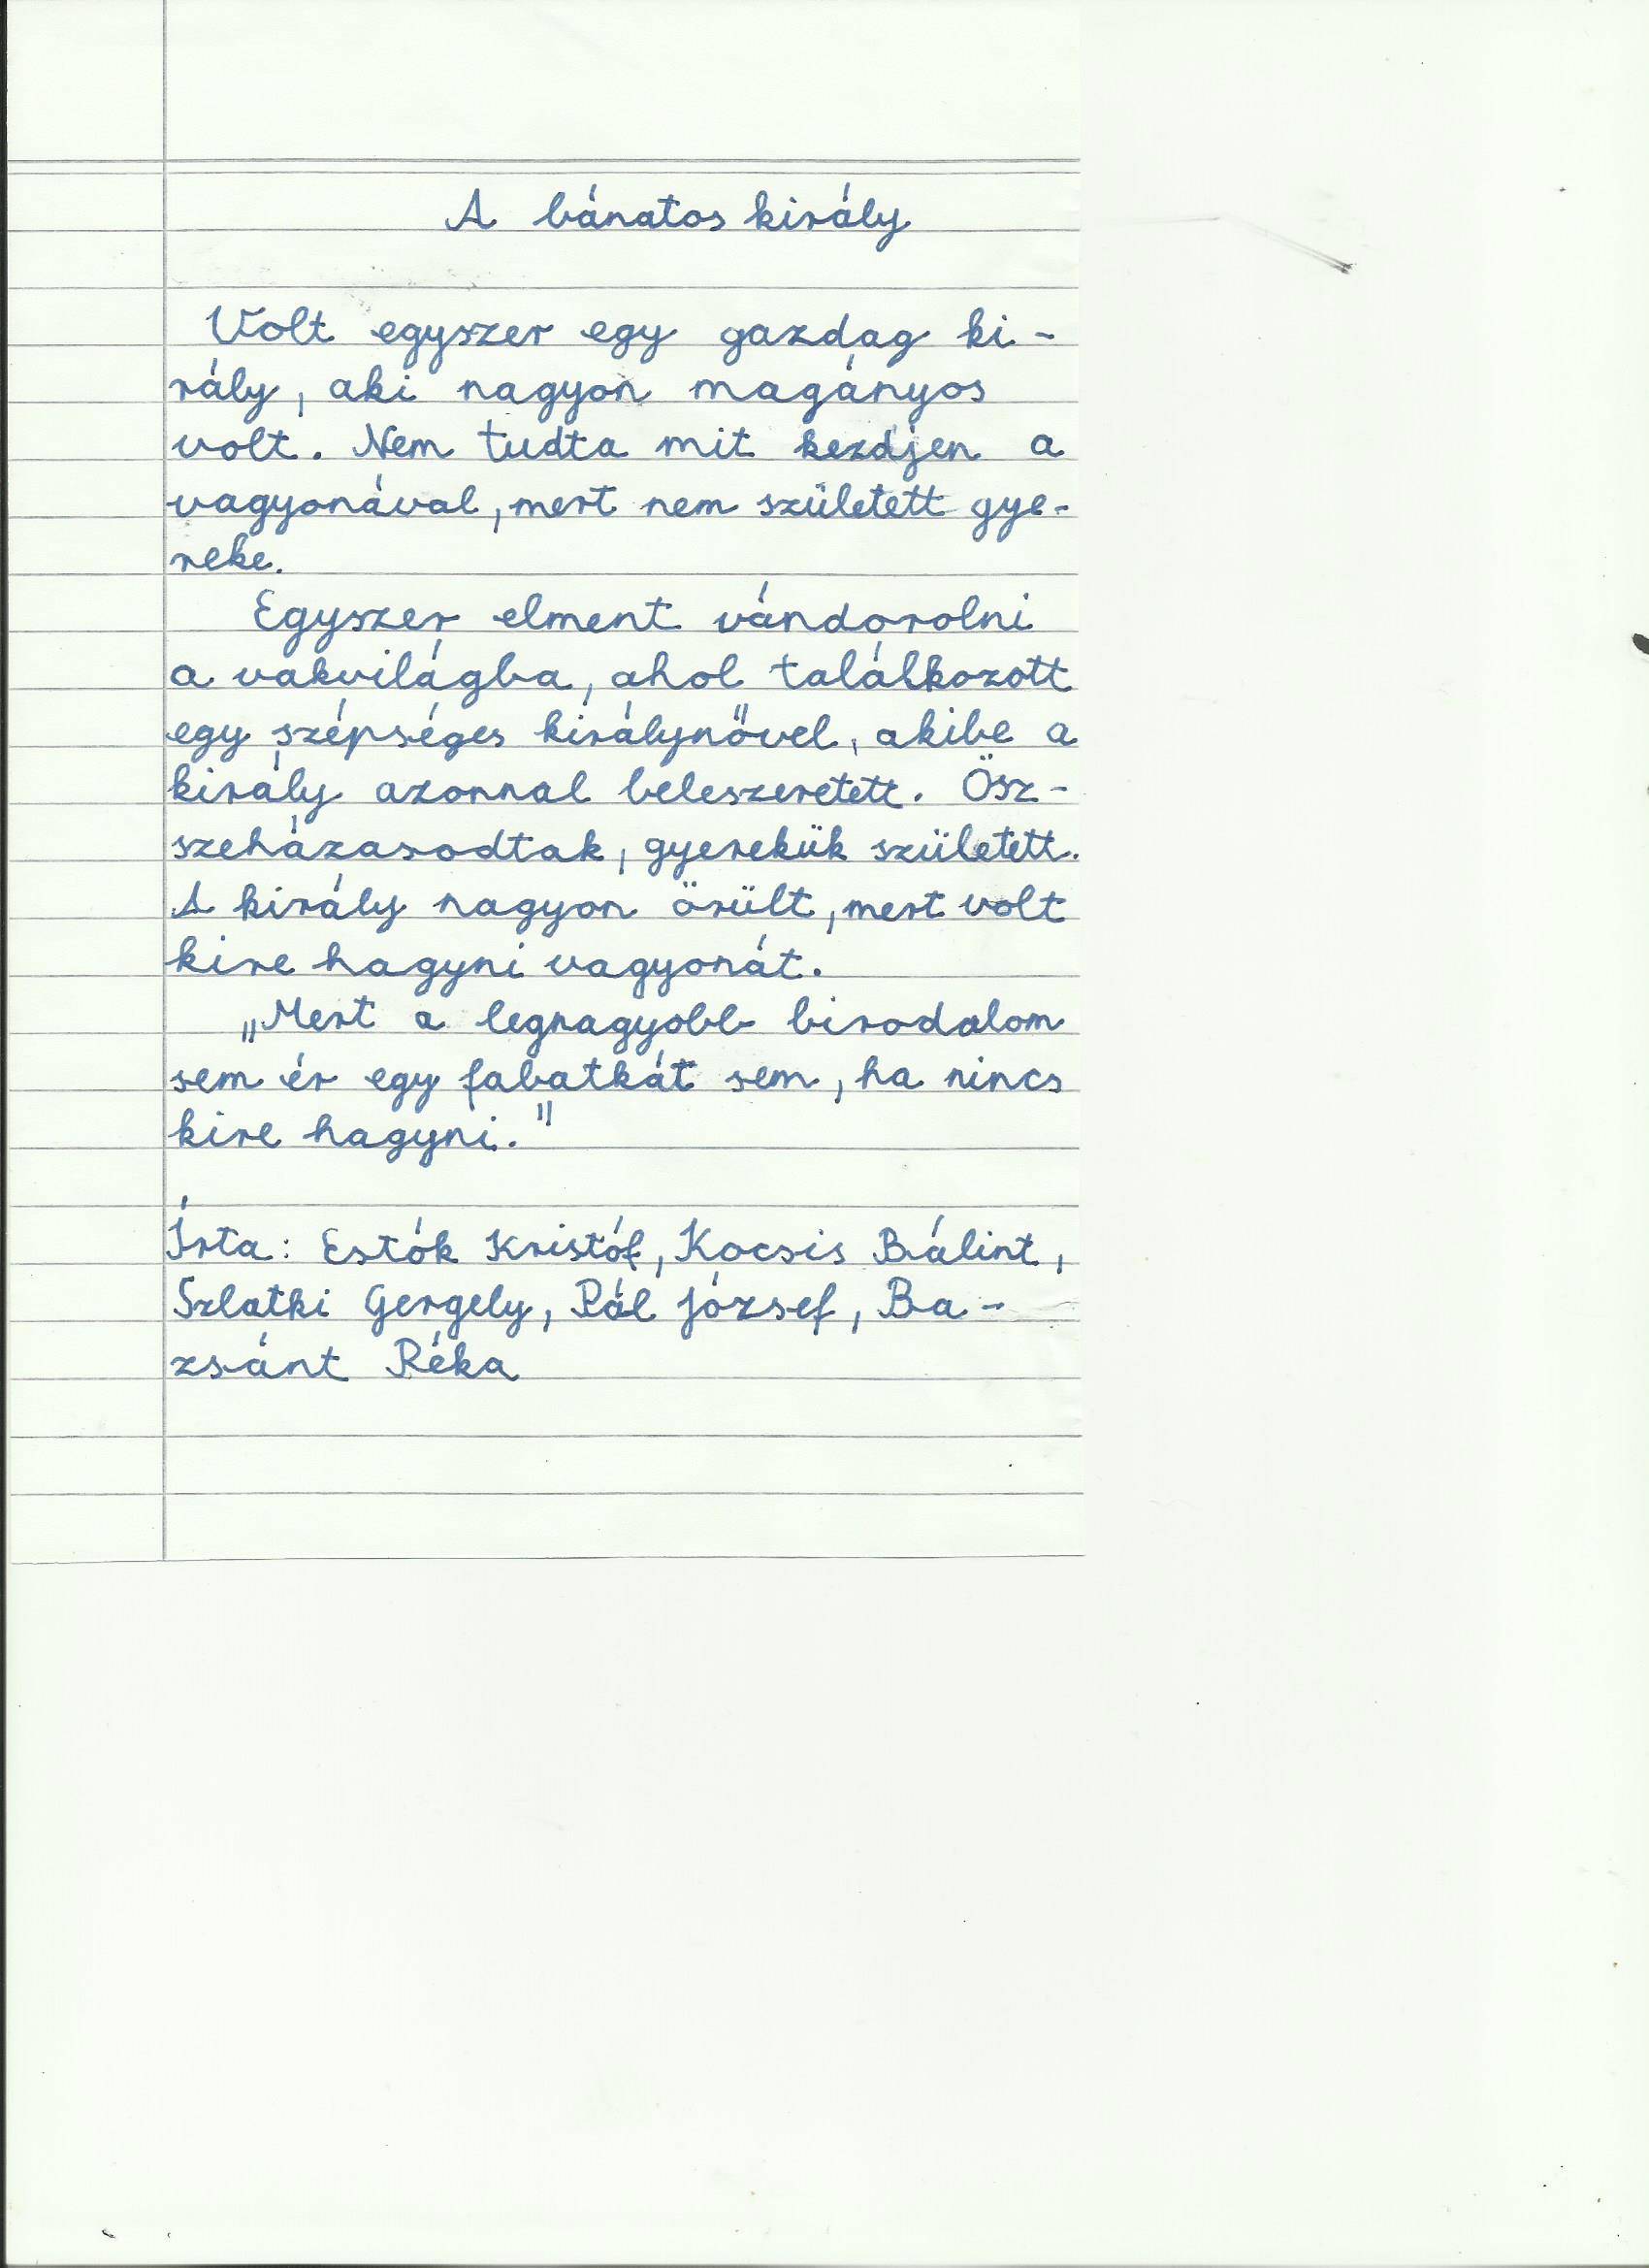 A bánatos király
Volt egyszer egy gazdag ki-
rály, aki nagyon magányos
volt. Nem tudta mit kezdjen a
vagyonával, mert nem született gye-
reke.
Egyszer elment vándorolni
a vakvilágba, ahol találkozott
egy szépséges királynővel, akibe a
király azonnal beleszeretett. Ösz-
szeházasodtak, gyerekük született.
A király nagyon örült, mert volt
kire hagyni vagyonát.
„Mert a legnagyobb birodalom
sem ér egy fabatkát sem, ha nincs
kire hagyni."
Írta: Estók Kristóf, Kocsis Bálint,
Szlatki Gergely, Pál József, Ba-
zsánt Réka